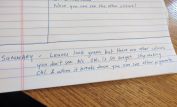 Now you can see the other colors!
Summary - Leaves look green but there are other colors
you don't see bc Chl. is no longer making
Chl & when it breaks down you can see other pigments